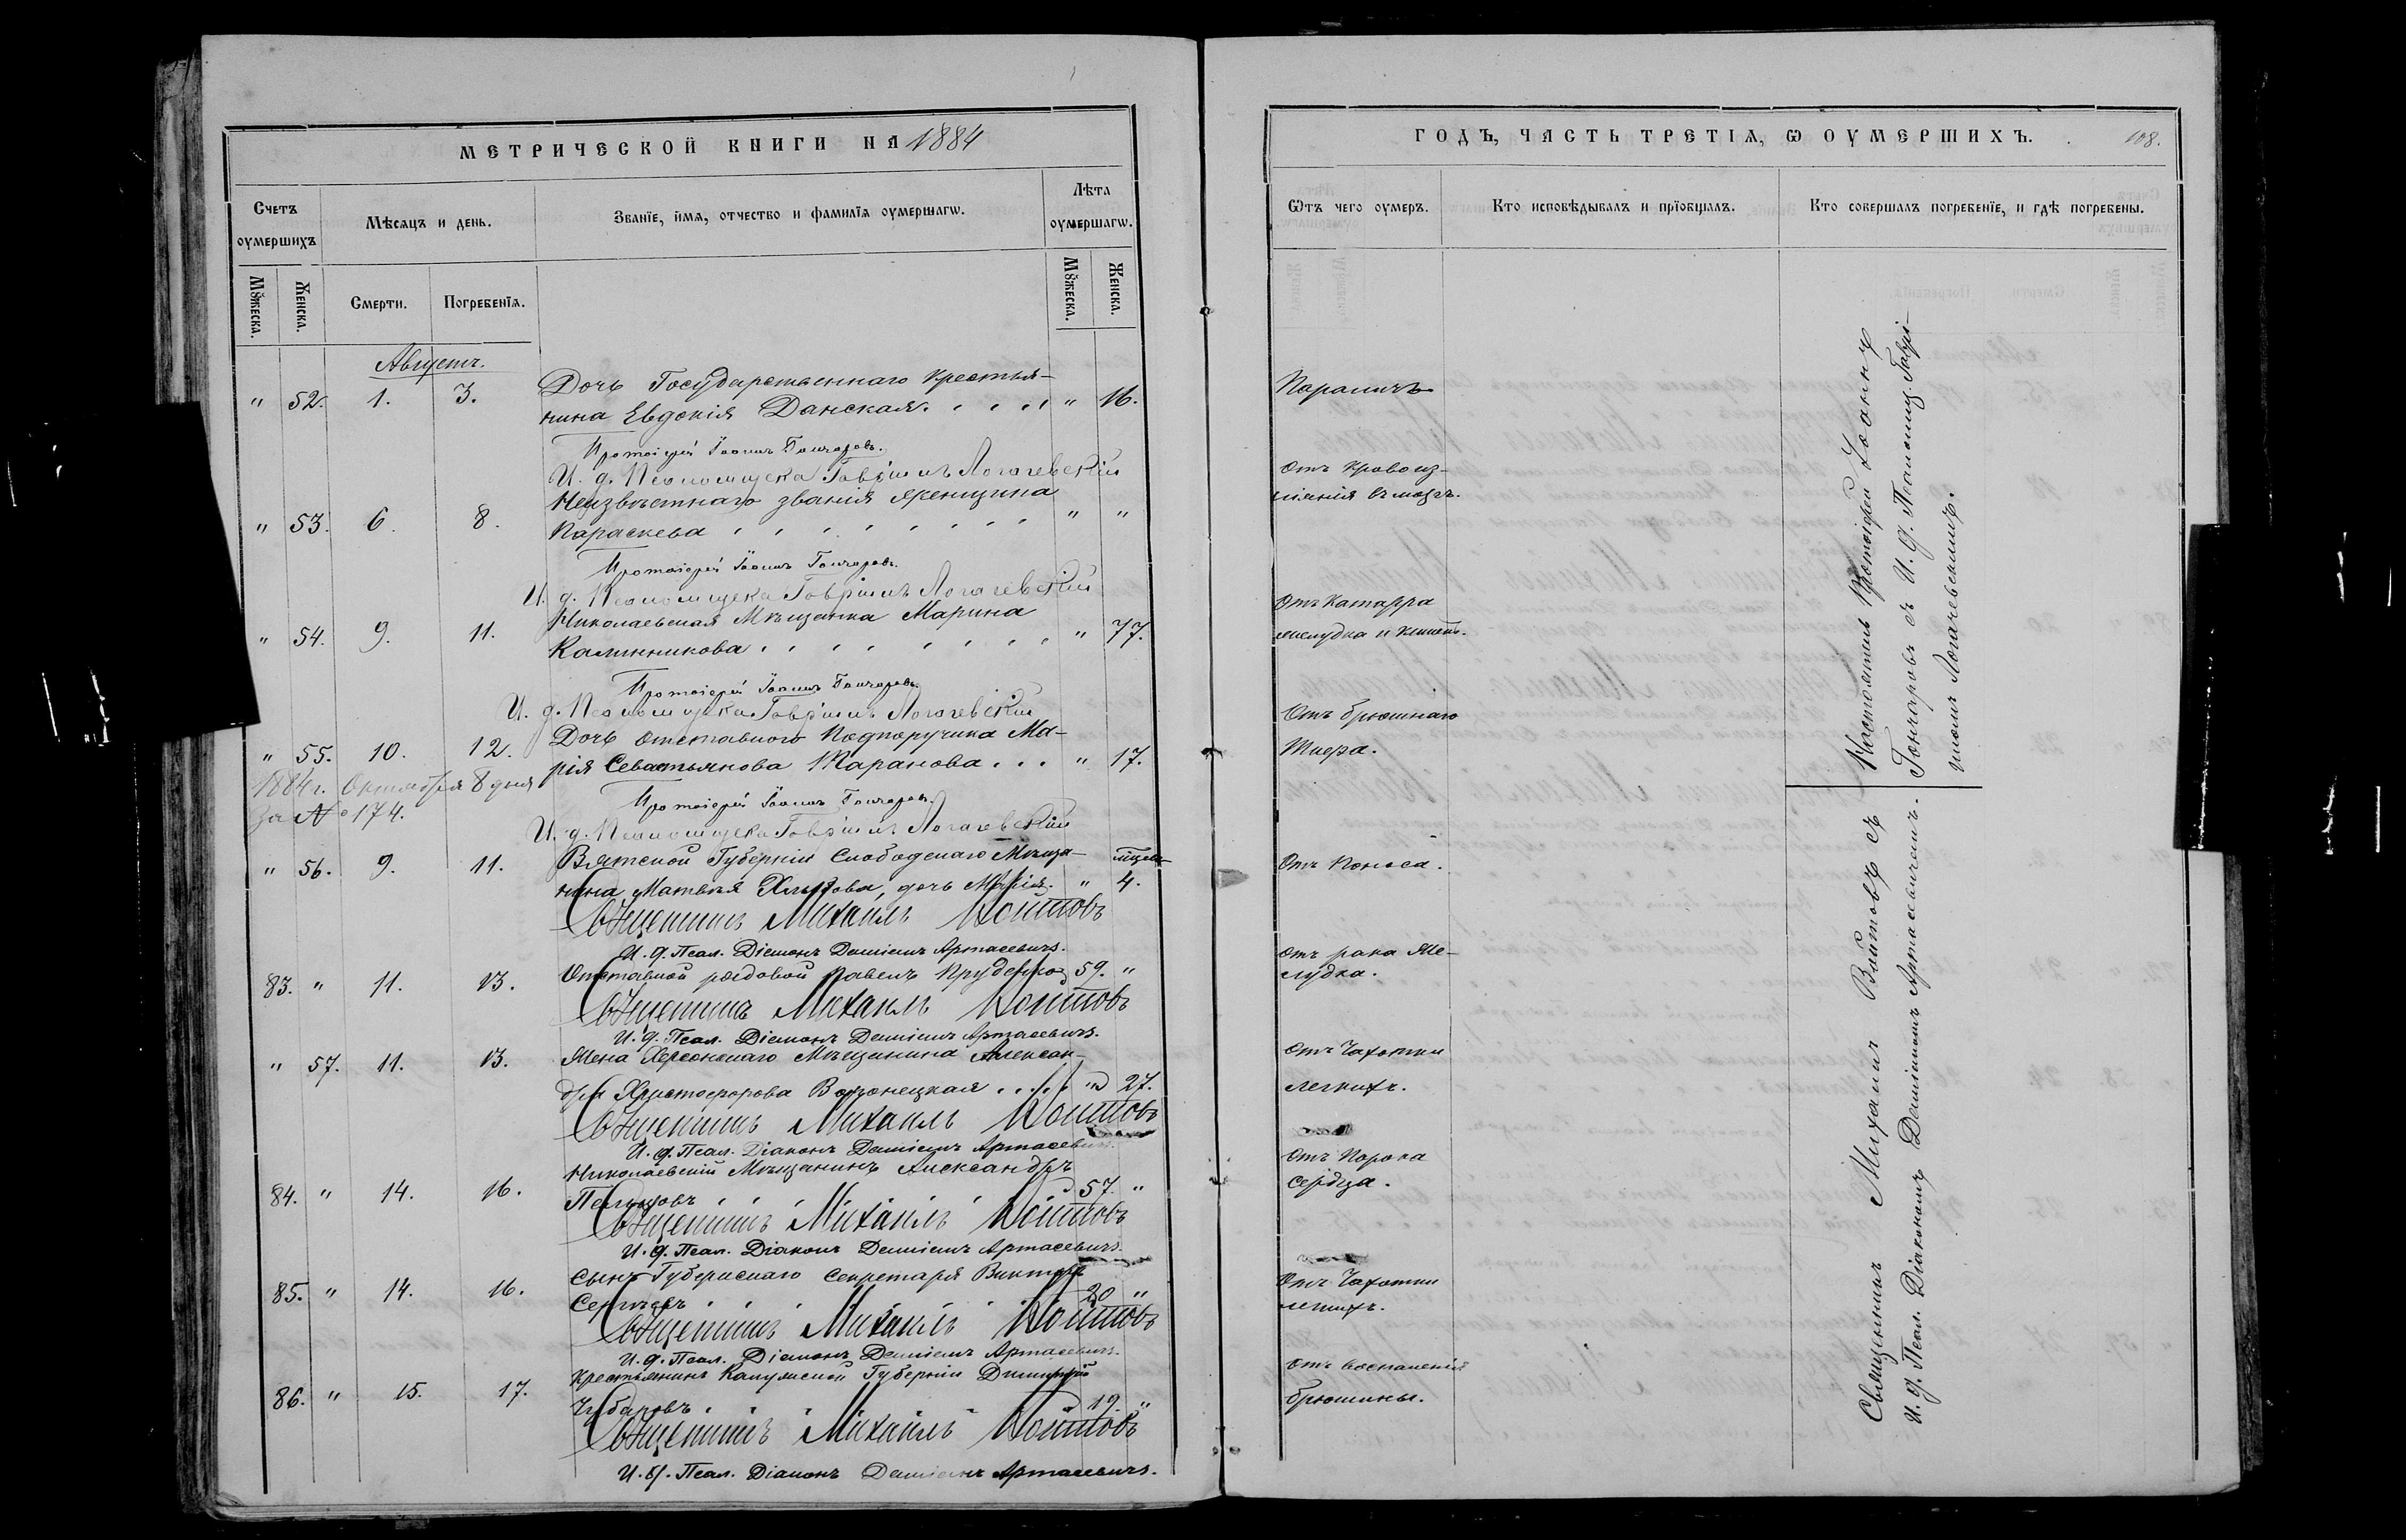 МЕТРИЧЕСКОЙ КНИГИ НА 1884
Счетъ оумершихъ
Мѣсяцъ и день.
Званїе, имя, отчество и фамилїя оумершагѡ.
Лѣта оумершагѡ.
Мꙋжеска.
Женска.
Смерти.
Погребенїя.
Мꙋжеска.
Женска.
Августъ.
" 52. 1. 3. Дочь Государственнаго крестья-
нина Евдокія Данская. . . . . " 16.
Протоіерей Іоаннъ Гончаровъ.
И. д. Псаломщика Гавріилъ Логачевскій
Неизвѣстнаго званія женщина
" 53. 6. 8. Параскева " "
Протоіерей Іоаннъ Гончаровъ.
И. д. Псаломщика Гавріилъ Логачевскій
Николаевская Мѣщанка Марина
" 54. 9. 11. Калинникова " 77.
Протоіерей Іоаннъ Гончаровъ.
И. д. Псаломщика Гавріилъ Логачевскій
" 55. 10. 12. Дочь отставного Подпоручика Ма-
рія Севастьянова Жаранова . . . " 17.
1884 г. Октября 8 дня
за № 174.
Протоіерей Іоаннъ Гончаровъ.
И. д. Псаломщика Гавріилъ Логачевскій
" 56. 9. 11. Вятской Губерніи Слободскаго Мѣща-
нина Матвѣя дочь Марія. " 4.
Священникъ Михаилъ Войтовъ
И. д. Псал. Діаконъ Даміанъ Артасевичъ.
83. " 11. 13. Отставной рядовой Павелъ Пруденко 59. "
Священникъ Михаилъ Войтовъ
И. д. Псал. Діаконъ Даміанъ Артасевичъ.
" 57. 11. 13. Жена Херсонскаго Мѣщанина Алексан-
дра Христофорова Воронецкая . . . . " 27.
Священникъ Михаилъ Войтовъ
И. д. Псал. Діаконъ Даміанъ Артасевичъ.
Николаевскій Мѣщанинъ Александръ
84. " 14. 16. 57. "
Священникъ Михаилъ Войтовъ
И. д. Псал. Діаконъ Даміанъ Артасевичъ.
Сынъ Губернскаго Секретаря Викторъ
85. " 14. 16. Сергѣевъ 20 "
Священникъ Михаилъ Войтовъ
И. д. Псал. Діаконъ Даміанъ Артасевичъ.
Крестьянинъ Калужской Губерніи Димитрій
86. " 15. 17. Чубаровъ 19. "
Священникъ Михаилъ Войтовъ
И. д. Псал. Діаконъ Даміанъ Артасевичъ.
ГОДЪ, ЧАСТЬ ТРЕТІЯ, Ѡ ОУМЕРШИХЪ.
108.
Ѿтъ чего оумеръ.
Кто исповѣдывалъ и прїобщалъ.
Кто совершалъ погребенїе, и гдѣ погребены.
Параличъ
Отъ кровоиз-
ліянія въ мозгъ.
Отъ Катарра
желудка и кишекъ.
Отъ брюшнаго
Тифа.
Отъ Поноса.
Отъ рака Же-
лудка.
Отъ Чахотки
легкихъ.
Отъ Порока
сердца.
Отъ Чахотки
легкихъ.
Отъ воспаленія
брюшины.
Настоятель Протоіерей Іоаннъ
Гончаровъ съ И. д. Псаломщ. Гаврі-
иломъ Логачевскимъ.
Священникъ Михаилъ Войтовъ съ
И. д. Псал. Діакономъ Даміаномъ Артасевичемъ.